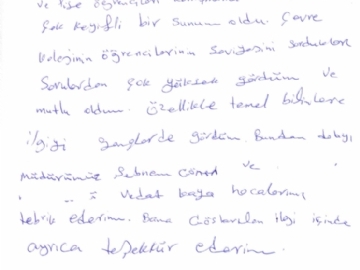 ve lise öğrencileri
çok keyifli bir sunum oldu. Çevre
öğrencilerinin seviyesini sordukları
Sorulardan çok yüksek gördüm ve
mutlu oldum. Özellikle temel bilimlere
ilgiyi gençlerde gördüm. Bundan dolayı
müdürümüz Şebnem ve
Vedat hocalarımı
tebrik ederim. Bana Gösterilen ilgi içinde
ayrıca teşekkür ederim.